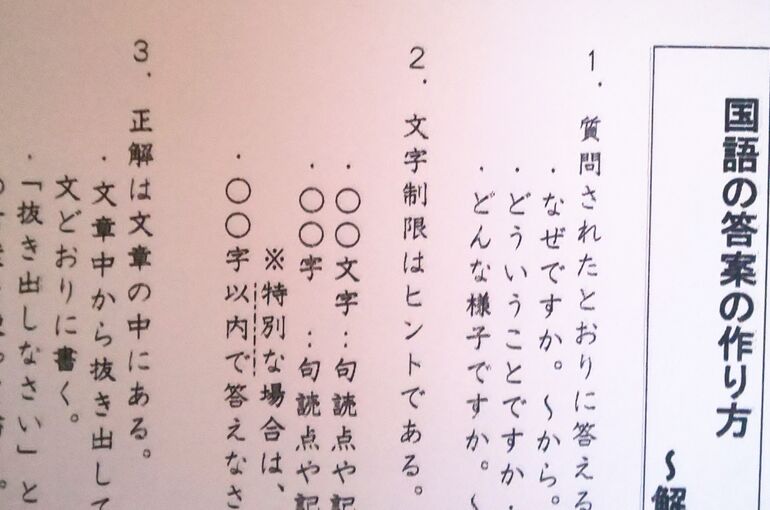 国語の答案の作り方
～解
1．質問されたとおりに答える
・なぜですか。～から。
・どういうことですか
・どんな様子ですか。～
2．文字制限はヒントである。
・〇〇文字：句読点や記
・〇〇字　：句読点や記
※特別な場合は、
・〇〇字以内で答えなさ
3．正解は文章の中にある。
・文章中から抜き出して
文どおりに書く。
・「抜き出しなさい」と